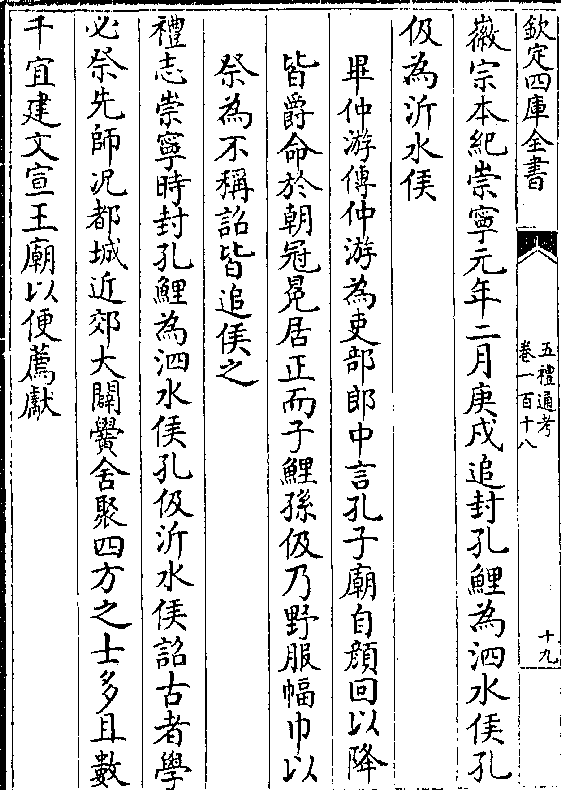 欽定四庫全書
五禮通考
卷一百十八
十九
徽宗本紀崇寧元年二月庚戌追封孔鯉為泗水侯孔
伋為沂水侯
畢仲游傳仲游為吏部郎中言孔子廟自顔回以降
皆爵命於朝冠冕居正而子鯉孫伋乃野服幅巾以
祭為不稱詔皆追侯之
禮志崇寧時封孔鯉為泗水侯孔伋沂水侯詔古者學
必祭先師況都城近郊大闢黌舍聚四方之士多且數
千宜建文宣王廟以便薦獻